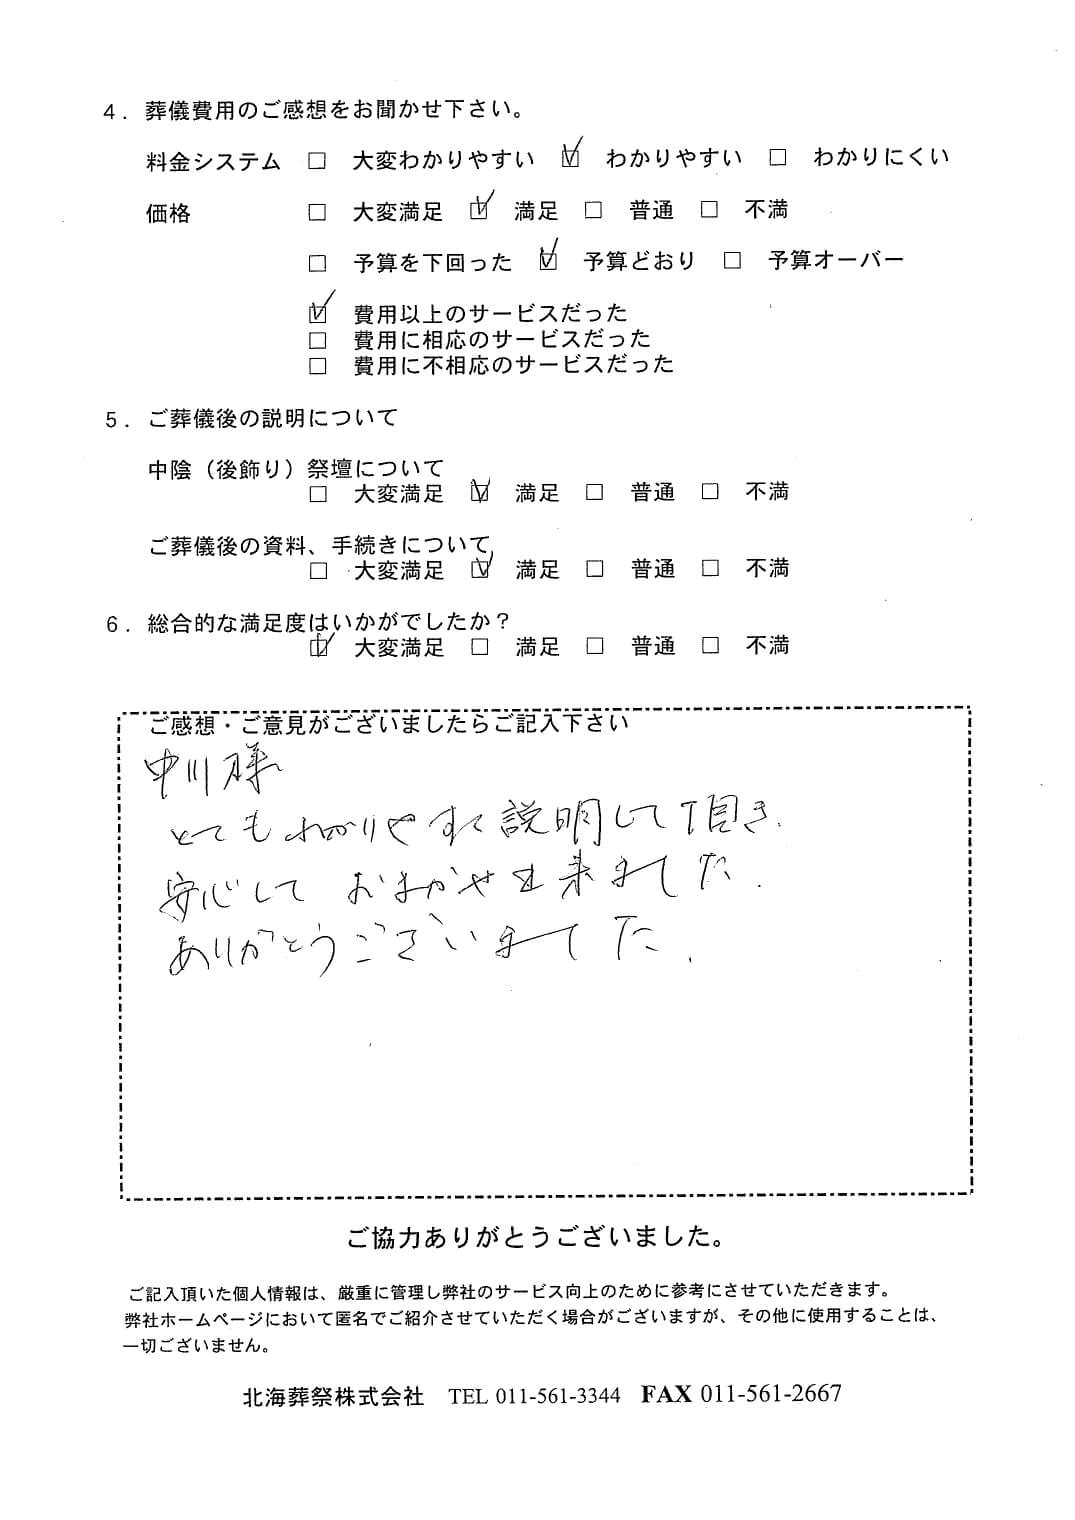 4．葬儀費用のご感想をお聞かせ下さい。
料金システム □ 大変わかりやすい ☑ わかりやすい □ わかりにくい
価格 □ 大変満足 ☑ 満足 □ 普通 □ 不満
□ 予算を下回った ☑ 予算どおり □ 予算オーバー
☑ 費用以上のサービスだった
□ 費用に相応のサービスだった
□ 費用に不相応のサービスだった
5．ご葬儀後の説明について
中陰（後飾り）祭壇について
□ 大変満足 ☑ 満足 □ 普通 □ 不満
ご葬儀後の資料、手続きについて
□ 大変満足 ☑ 満足 □ 普通 □ 不満
6．総合的な満足度はいかがでしたか？
☑ 大変満足 □ 満足 □ 普通 □ 不満
ご感想・ご意見がございましたらご記入下さい
中川様
とてもわかりやすく説明して頂き、
安心しておまかせ出来ました。
ありがとうございました。
ご協力ありがとうございました。
ご記入頂いた個人情報は、厳重に管理し弊社のサービス向上のために参考にさせていただきます。
弊社ホームページにおいて匿名でご紹介させていただく場合がございますが、その他に使用することは、
一切ございません。
北海葬祭株式会社 TEL 011-561-3344 FAX 011-561-2667